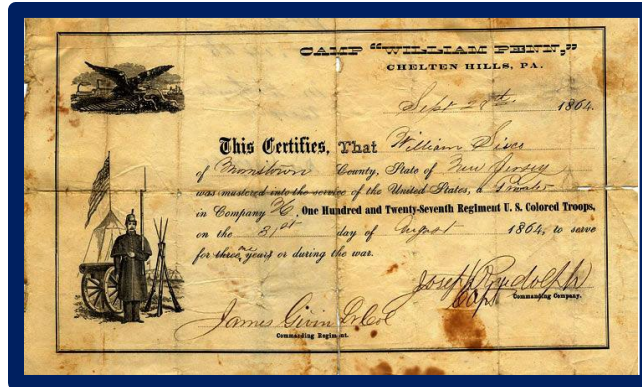 CAMP "WILLIAM PENN,"
CHELTEN HILLS, PA.
Sept 28th 1864.
This Certifies, That William Sisco
of County, State of New Jersey
was mustered into the service of the United States, a Private
in Company , One Hundred and Twenty-Seventh Regiment U. S. Colored Troops,
on the 31st day of August 1864, to serve
for three one years or during the war.
Joseph Rudolph
Capt Commanding Company.
James Givin Lt Col
Commanding Regiment.